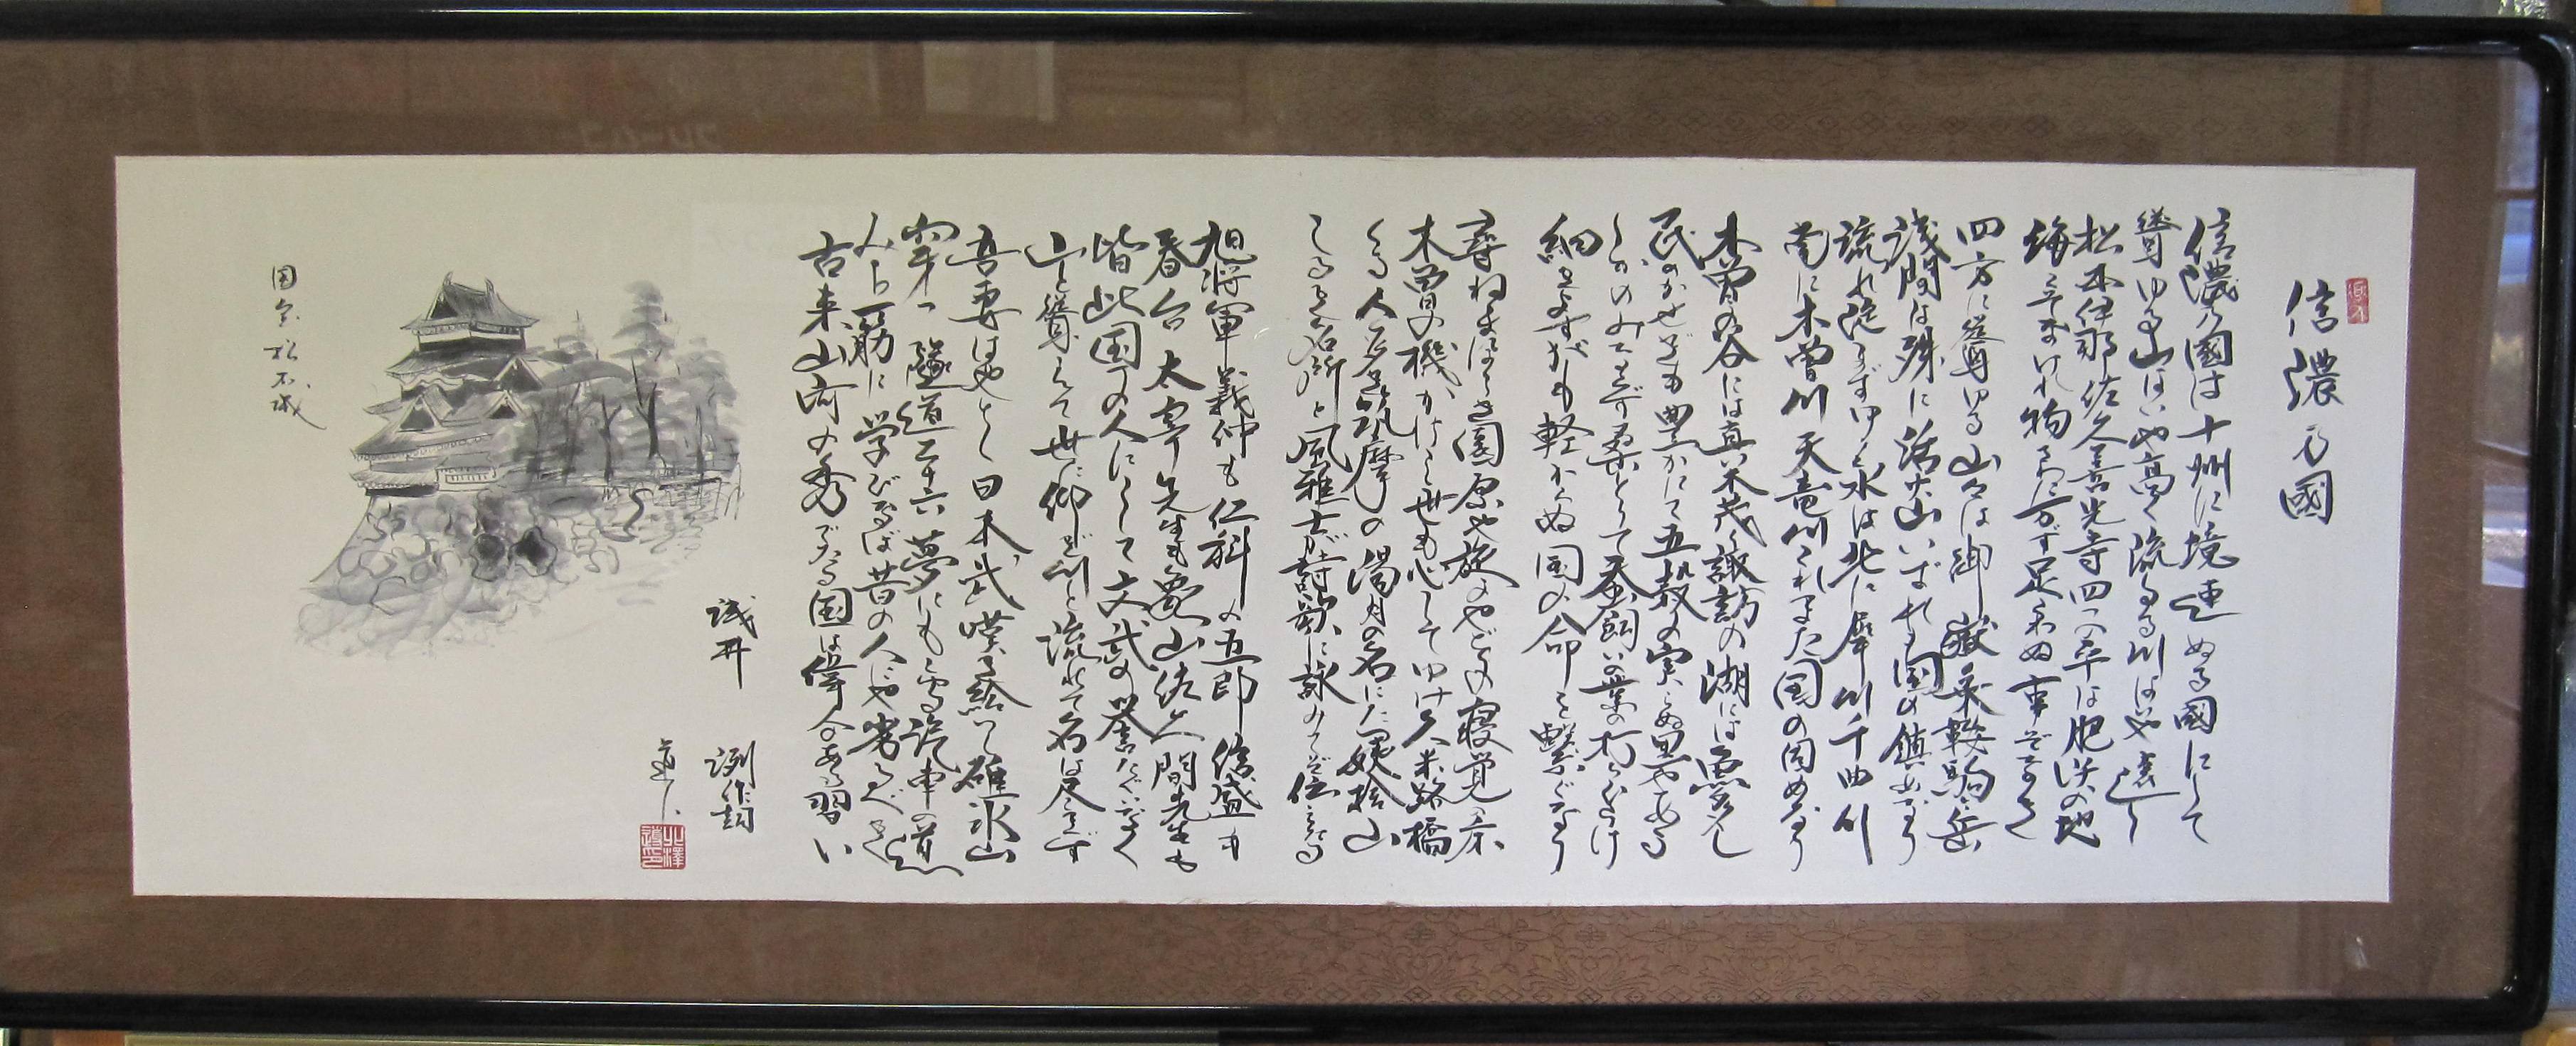 信濃の國
信濃の國は十州に境連ぬる國にして
聳ゆる山はいや高く流るる川はや遠し
松本伊那佐久善光寺四つの平は肥沃の地
海こそなけれ物さわに万ず足らわぬ事ぞなき
四方に聳ゆる山々は御嶽乗鞍駒ヶ岳
浅間は殊に活火山いずれも国の鎮めなり
流れ淀まずゆく水は北に犀川千曲川
南に木曽川天竜川これまた国の固めなり
木曽の谷には真木茂り諏訪の湖には魚多し
民のかせぎも豊かにて五穀の実らぬ里やある
しかのみならず桑とりて蚕飼いの業の打ちひらけ
細きよすがも軽からぬ国の命を繋ぐなり
尋ねまほしき園原や旅のやどりの寝覚の床
木曽の桟かけし世も心してゆけ久米路橋
くる人多き筑摩の湯月の名にたつ姨捨山
しるき名所と風雅士が詩歌に詠みてぞ伝えたる
旭将軍義仲も仁科の五郎信盛も
春台太宰先生も象山佐久間先生も
皆此国の人にして文武の誉たぐいなく
山と聳えて世に仰ぎ川と流れて名は尽きず
吾妻はやとし日本武嘆き給いし碓氷山
穿つ隧道二十六夢にも越ゆる汽車の道
みち一筋に学びなば昔の人にや劣るべき
古来山河の秀でたる国は偉人のある習い
浅井 洌作詞
国宝松本城
北澤